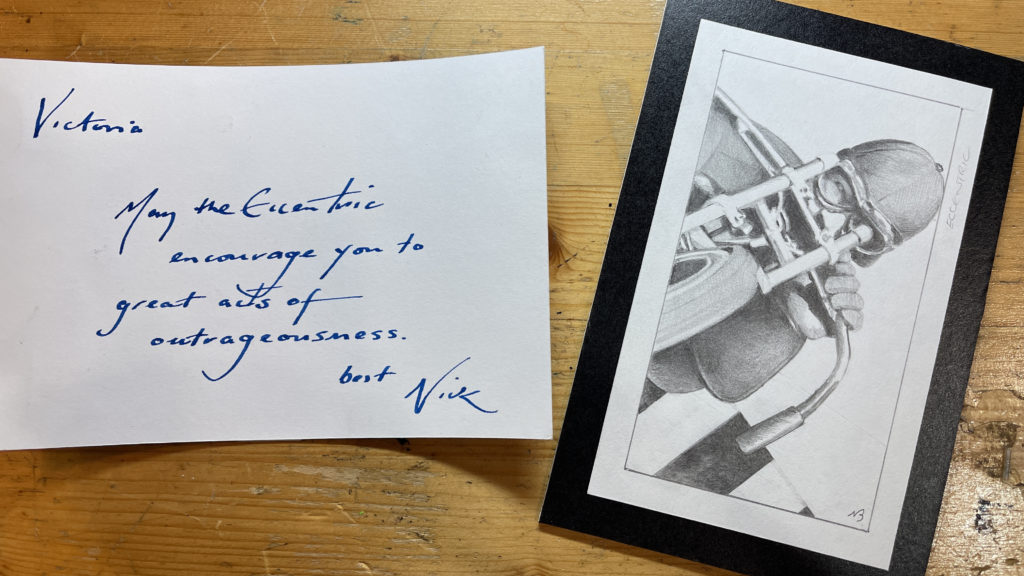 Victoria
May the Eccentric
encourage you to
great acts of
outrageousness.
best Nick
ECCENTRIC
NB